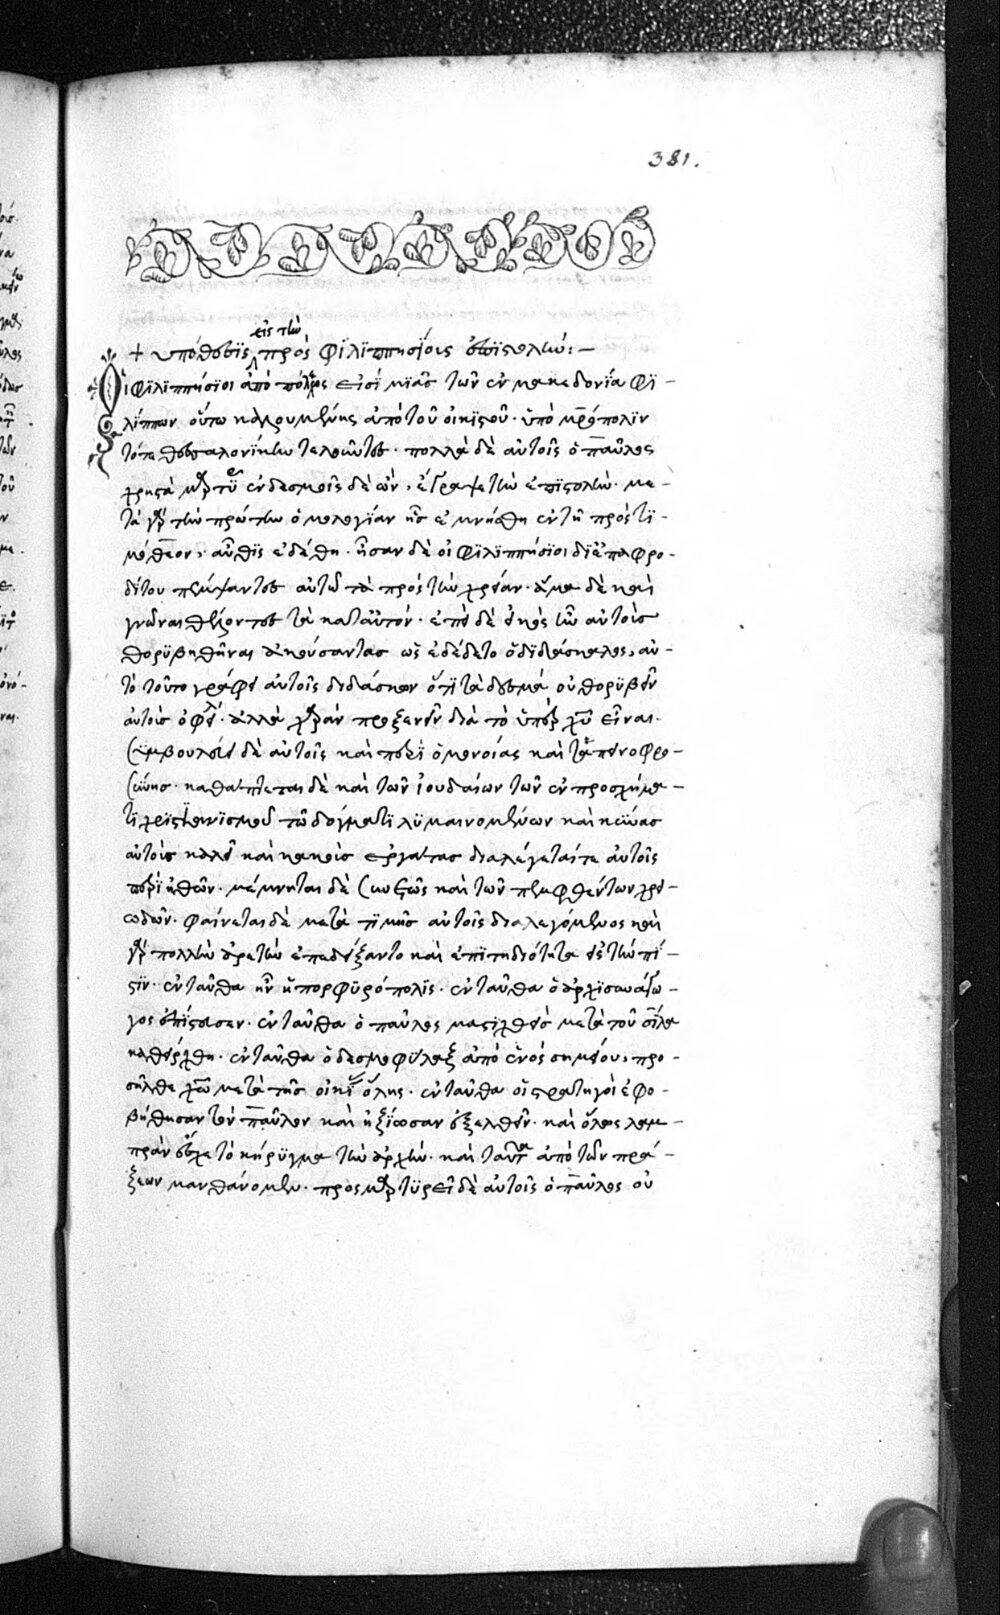 381.
εἰς τὴν
+ ὑπόθεσϊς πρὸς φϊλϊππησΐους ἐπϊστολήν: –
Οἱ φϊλϊππήσϊοι ἀπὸ πόλεως εἰσὶ μϊᾶς τῶν ἐν μακεδονία φϊ –
λίππων οὕτω καλουμένης ἀπὸ τοῦ οἰκϊστοῦ· ὑπὸ μρόπολϊν
τότε θεσσαλονίκην τελοῦντες· πολλὰ δὲ αὐτοῖς ὁ παῦλος
χρηστὰ μαρτϋρεῖ ἐν δεσμοῖς δὲ ὢν, ἔγραψε τὴν ἐπϊστολήν· με –
τὰ γὰρ τὴν πρώτην ὁμολογίαν ἧς ἐμνήσθη ἐν τῆ πρὸς τϊ –
μόθεον, αὖθϊς ἐδέθη· ἦσαν δὲ οἱ φϊλϊππήσϊοι δϊ' ἐπαφρο –
δίτου πέμψαντες αὐτῶ τὰ πρὸς τὴν χρείαν· ἅμα δὲ καὶ
γνῶναι θέλοντες τὰ κατ' αὐτόν· ἐπεὶ δὲ εἰκὸς ἦν αὐτοὺς
θορϋβηθῆναι ἀκούσαντας ὡς ἐδέδετο ὁ δϊδάσκαλος, αὐ –
τὸ τοῦτο γράφει αὐτοῖς διδάσκων ὅτϊ τὰ δεσμὰ οὐ θορϋβεῖν
αὐτοὺς ὀφεί· ἀλλὰ χαρὰν προξενεῖν διὰ τὸ ὑπὲρ χῦ εἶναι·
Σϋμβουλεύει δὲ αὐτοῖς καὶ περὶ ὁμονοίας καὶ ταπεινοφρο –
σύνης· καθάπτεται δὲ καὶ τῶν ἰουδαίων τῶν ἐν προσχήμα –
τϊ χρϊστϊανϊσμοῦ τῶ δόγματϊ λϋμαινομένων καὶ κύνας
αὐτοὺς καλεῖ καὶ κακοὺς ἐργάτας διαλέγεταί τε αὐτοῖς
περὶ ἠθῶν· μέμνηται δὲ συνεχῶς καὶ τῶν πεμφθέντων χρει –
ωδῶν· φαίνεται δὲ μετὰ τϊμῆς αὐτοῖς διαλεγόμενος καὶ
γὰρ πολλὴν ἀρετὴν ἐπεδείξαντο καὶ ἐπϊτηδειότητα εἰς τὴν πί –
στϊν· ἐνταῦθα ἦν ἡ πορφϋρόπολϊς· ἐνταῦθα ὁ ἀρχϊσυνάγω –
γος ἐπίστευσεν· ἐνταῦθα ὁ παῦλος μαστϊχθεὶς μετὰ τοῦ σίλα
καθείρχθη· ἐνταῦθα ὁ δεσμοφύλαξ ἀπὸ ἑνὸς σημείου, προ –
σῆλθε χῶ μετὰ τῆς οἰκί ὅλης· ἐνταῦθα οἱ στρατηγοὶ ἐφο –
βήθησαν τὸν παῦλον καὶ ἠξίωσαν ἐξελθεῖν· καὶ ὅλως λαμ –
πρὰν ἔσχε τὸ κήρϋγμα τὴν ἀρχήν· καὶ ταῦτα ἀπὸ τῶν πρά –
ξεων μανθάνομεν· προσμαρτϋρεῖ δὲ αὐτοῖς ὁ παῦλος οὐ